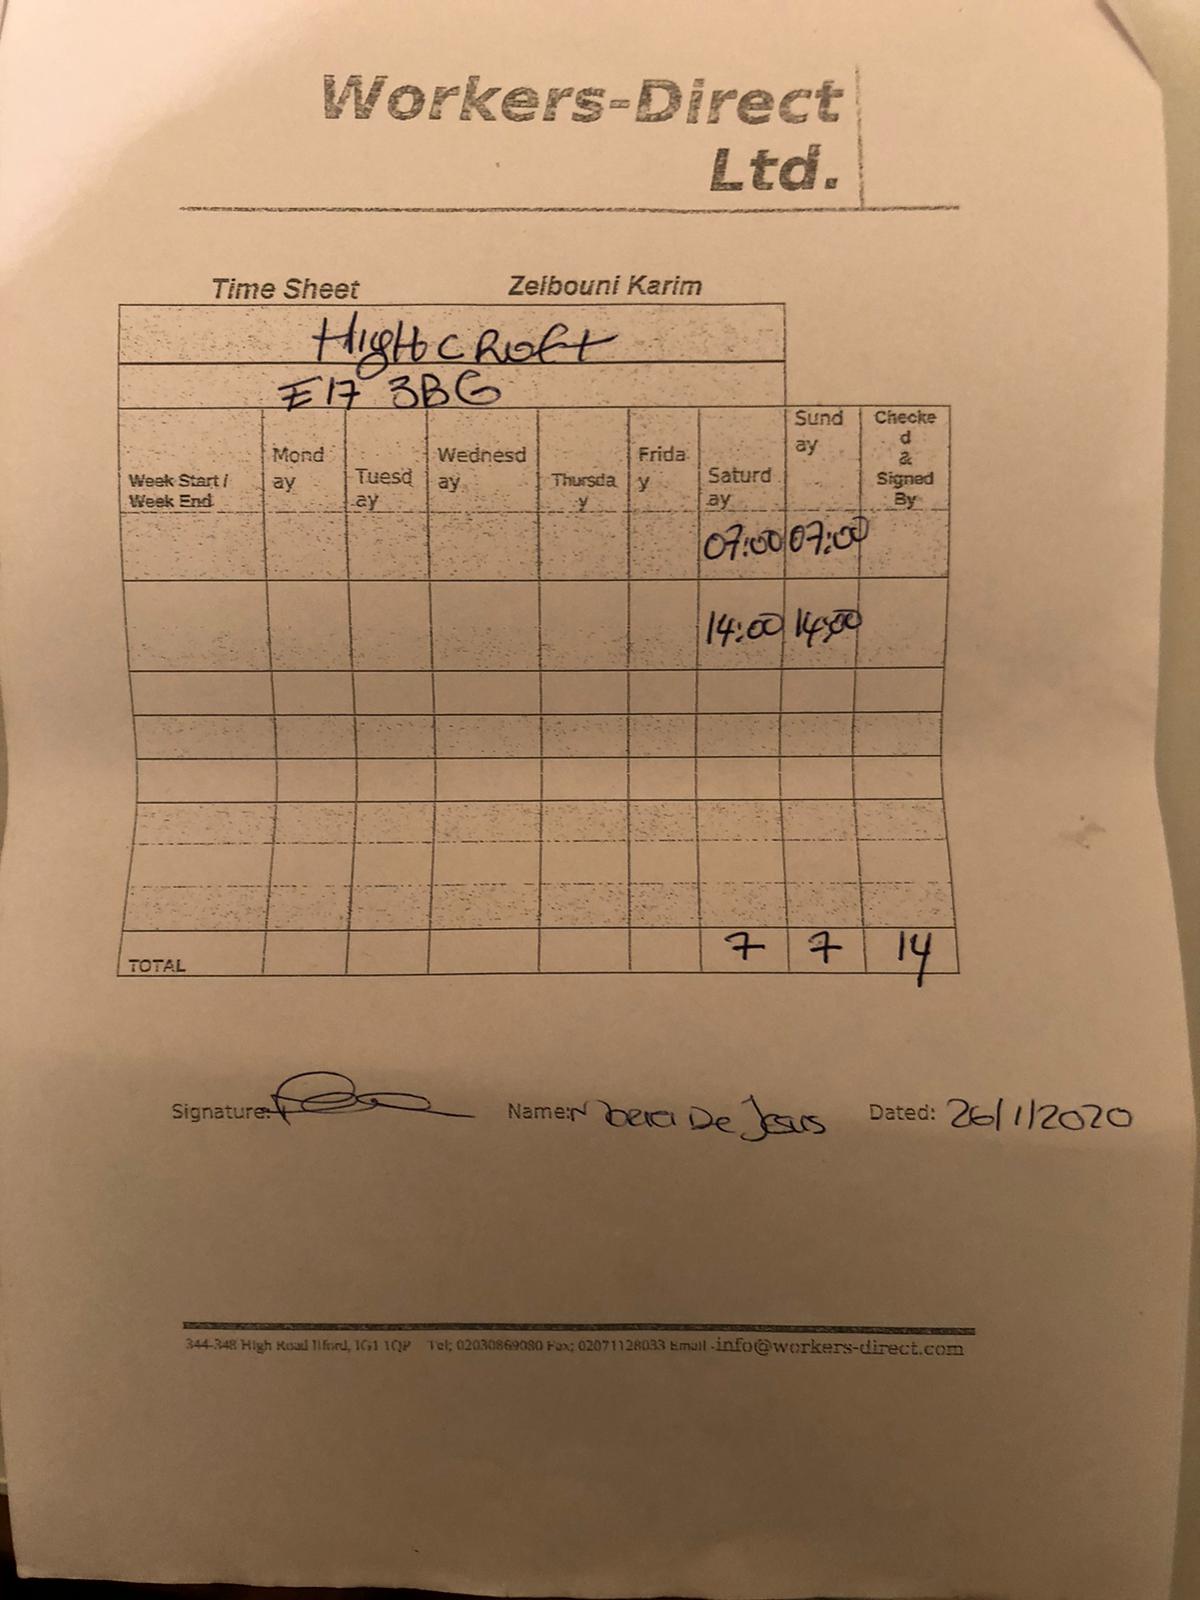 Workers-Direct
Ltd.
Time Sheet Zelbouni Karim
HighCRoft
E17 3BG
Week Start / Week End Monday Tuesday Wednesday Thursday Friday Saturday Sunday Checked & Signed By
07:00 07:00
14:00 14:00
TOTAL 7 7 14
Signature: Name: De Jesus Dated: 26/1/2020
344-348 High Road Ilford, IG1 1QP Tel; 02030869080 Fax; 02071128033 Email -info@workers-direct.com